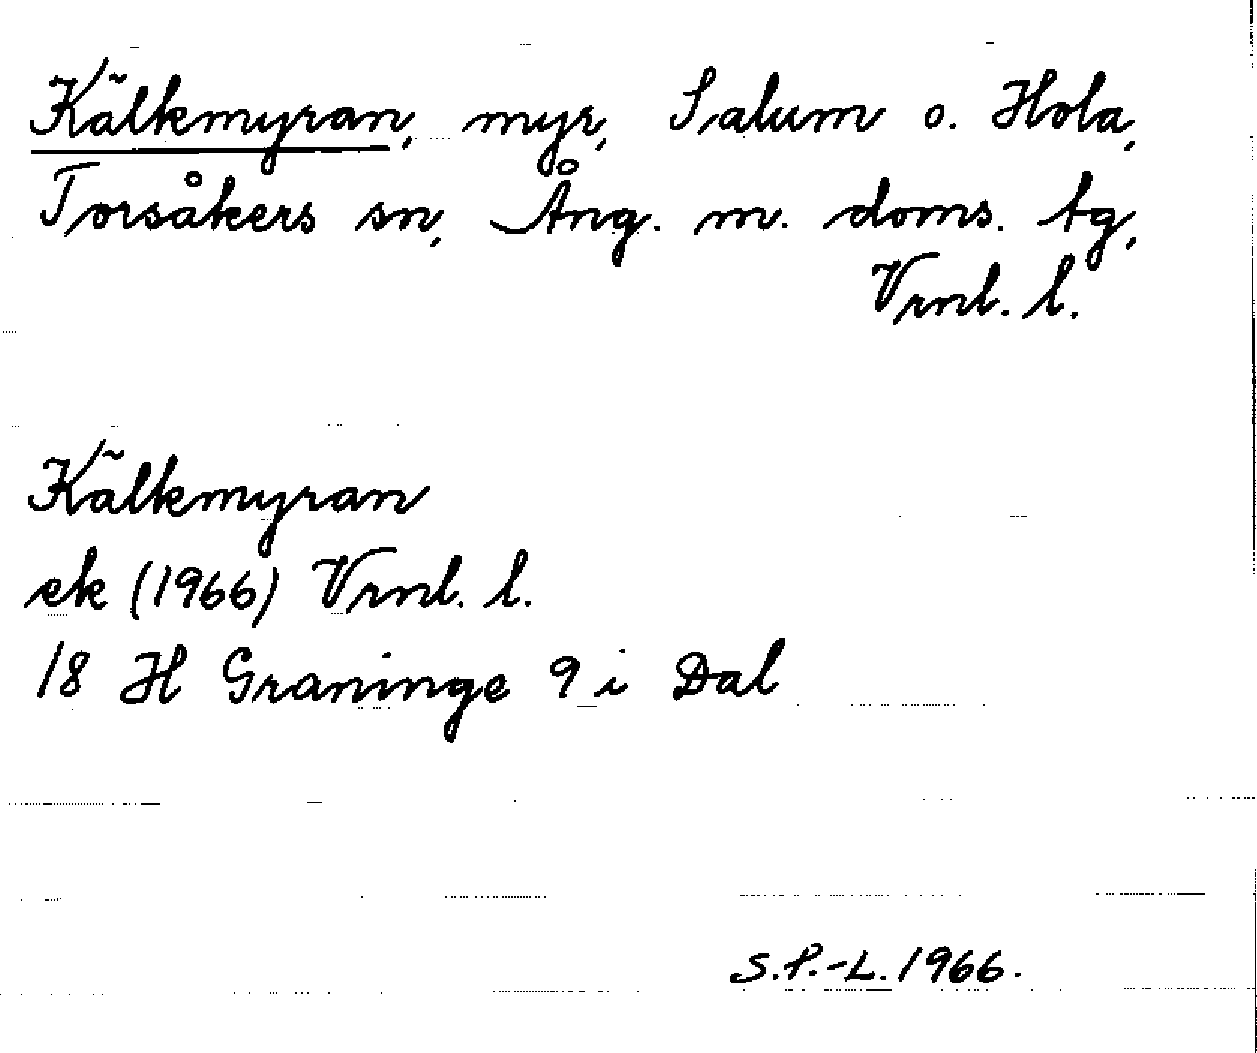 Kälkmyran, myr, Salum o. Hola,
Torsåkers sn, Ång. m. doms. tg,
Vrnl. l.
Kälkmyran
ek (1966) Vrnl. l.
18 H Graninge 9 i Dal
S.P.-L. 1966.